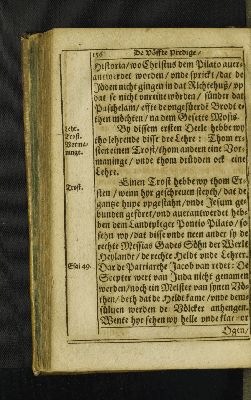 156 De Vöffte Predige/
Historia/wo Christus dem Pilato auer-
andtwordet worden/vnde sprickt/dat de
Jöden nicht gingen in dat Richtehuß/vp
dat se nicht vnreine würden/sünder dat
Paschelam/effte dem gesürde Brodt e-
then möchten/na dem Gesette Mosis.
Lehr.
Trost.
Verma-
ninge.
By dissem ersten Deele hebbe wy
tho lehrende disse dre Lehre: Thom er-
sten einen Trost/thom andern eine Vor-
maninge/vnde thom drüdden ock eine
Lehre.
Trost.
Einen Trost hebbe wy thom Er-
sten/wenn hyr geschreuen steyth/dat de
gantze hupe vpgestahn/vnde Jesum ge-
bunden geföret/vnd auerantwerdet heb-
ben dem Landtpleger Pontio Pilato/so
sehn wy/dat disse vnde nen ander sy de
rechte Messias Gades Söhn der Werlt
Heylandt/de rechte Heldt vnde Lehrer.
Esai 49.
Dar de Patriarche Jacob van redet: De
Scepter wert van Juda nicht genamen
werden/noch ein Meister van synen Vö-
then/beth dat de Heldt kame/vnde dem-
süluen werden de Völcker anhengen.
Wente hyr sehen wy helle vnde klar vor
Ogen/